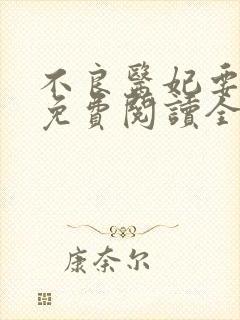 不良醫妃要
免費閱讀全
康奈尔